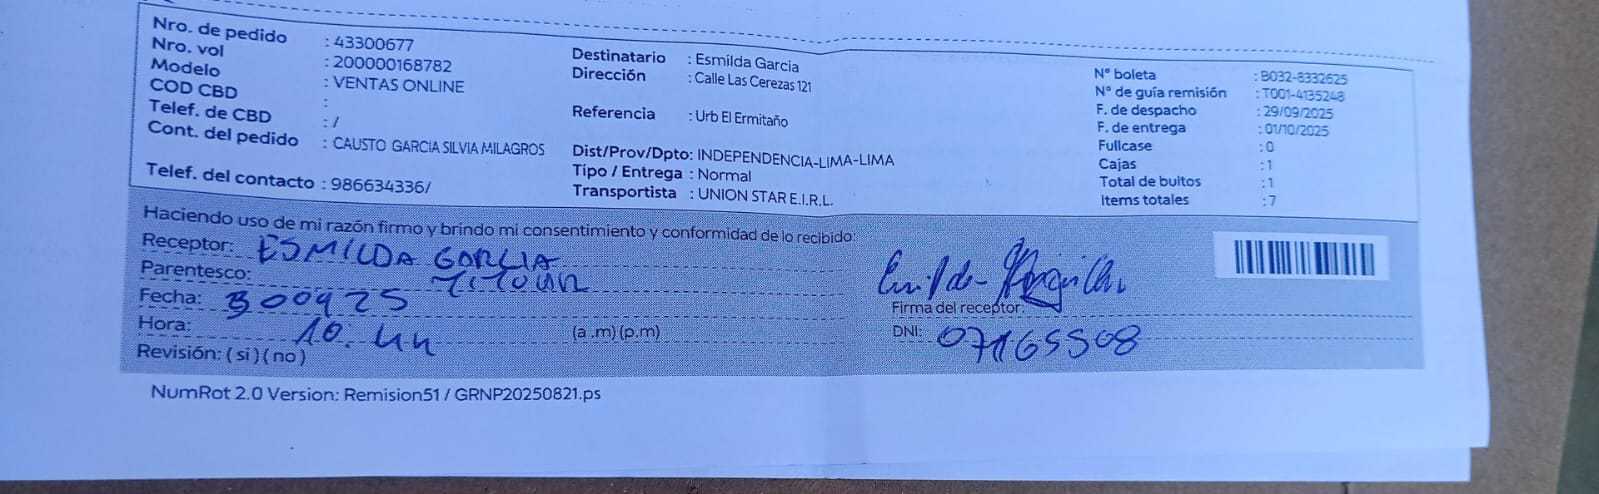 Nro. de pedido : 43300677
Nro. vol : 200000168782
Modelo : VENTAS ONLINE
COD CBD :
Telef. de CBD : /
Cont. del pedido : CAUSTO GARCIA SILVIA MILAGROS
Telef. del contacto : 986634336/
Destinatario : Esmilda Garcia
Dirección : Calle Las Cerezas 121
Referencia : Urb El Ermitaño
Dist/Prov/Dpto: INDEPENDENCIA-LIMA-LIMA
Tipo / Entrega : Normal
Transportista : UNION STAR E.I.R.L.
N° boleta : B032-8332625
N° de guía remisión : T001-4135248
F. de despacho : 29/09/2025
F. de entrega : 01/10/2025
Fullcase : 0
Cajas : 1
Total de bultos : 1
Items totales : 7
Haciendo uso de mi razón firmo y brindo mi consentimiento y conformidad de lo recibido:
Receptor: ESMILDA GARCIA
Parentesco: TITULAR
Fecha: 300925
Hora: 10:44 (a .m) (p.m)
Revisión: ( si ) ( no )
Firma del receptor:
DNI: 07165508
NumRot 2.0 Version: Remision51 / GRNP20250821.ps